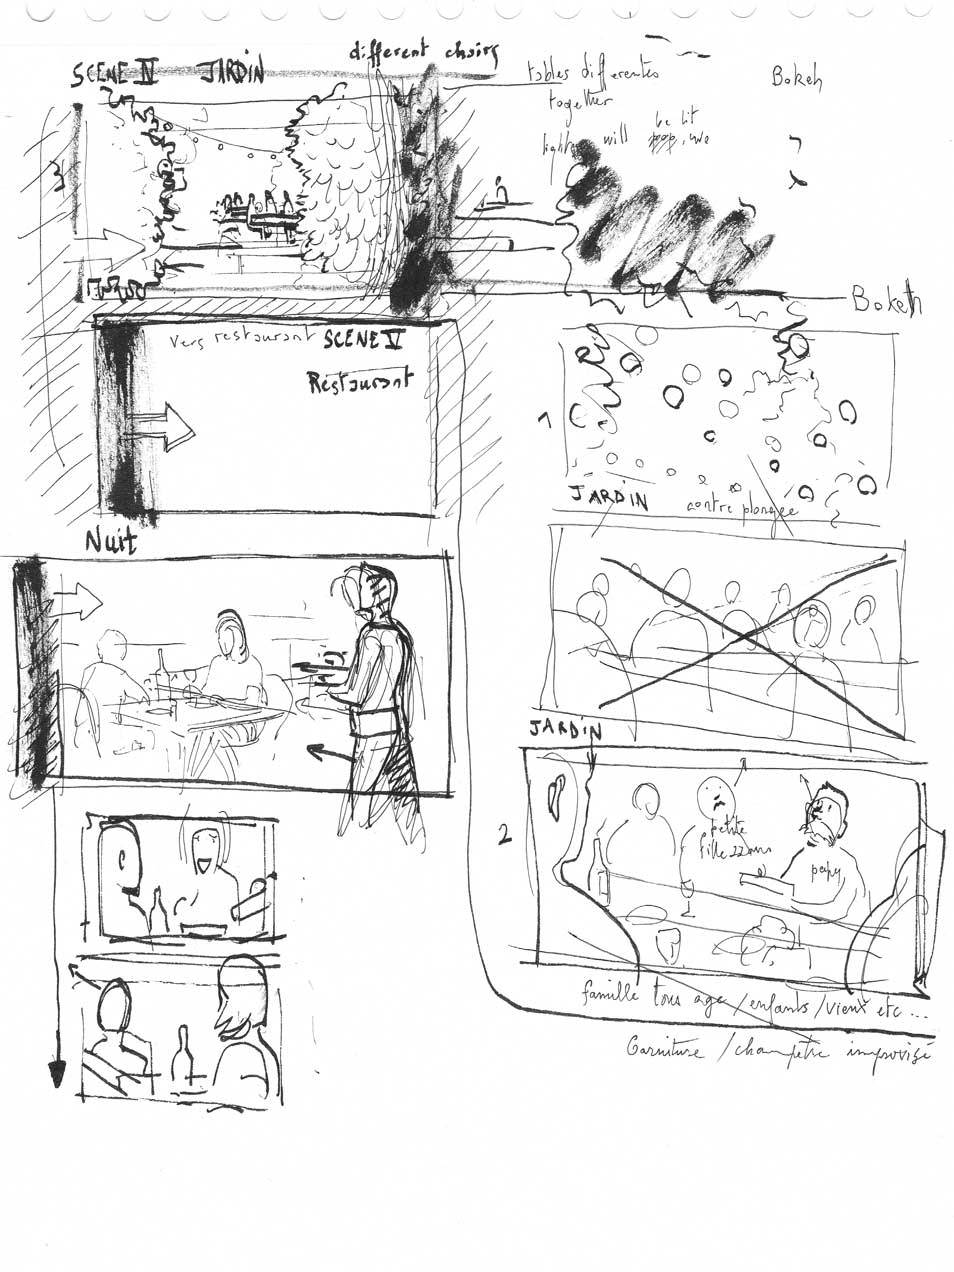 different chairs
SCENE IV JARDIN
tables differentes
together
lights will be lit
Bokeh
Bokeh
Vers restaurant SCENE V
Restaurant
1
JARDIN
contre plongee
Nuit
JARDIN
2
petite
fille 22 ans
papy
famille tous age / enfants / vieux etc ...
Garniture / champêtre improvisé